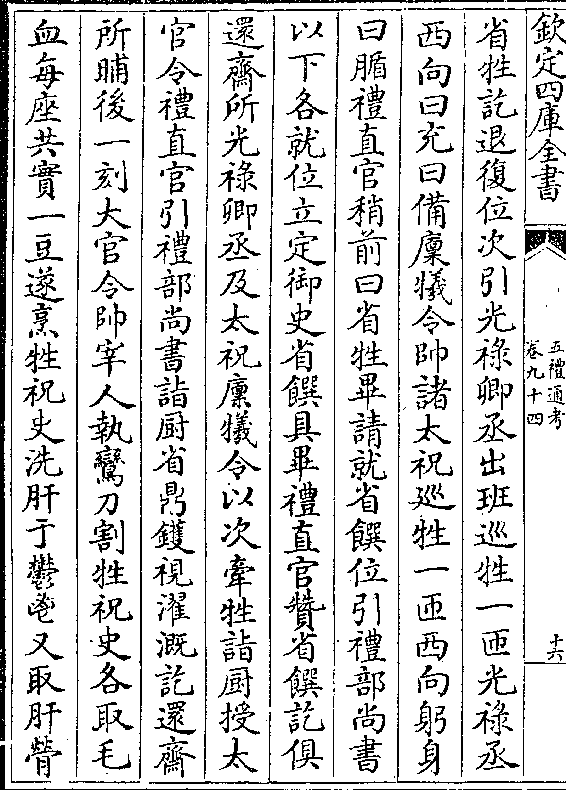 欽定四庫全書
五禮通考
卷九十四
十六
省牲訖退復位次引光祿卿丞出班巡牲一匝光祿丞
西向曰充曰備廩犧令帥諸太祝巡牲一匝西向躬身
曰腯禮直官稍前曰省牲畢請就省饌位引禮部尚書
以下各就位立定御史省饌具畢禮直官贊省饌訖俱
還齋所光祿卿丞及太祝廩犧令以次牽牲詣厨授太
官令禮直官引禮部尚書詣厨省鼎鑊視濯溉訖還齋
所晡後一刻大官令帥宰人執鸞刀割牲祝史各取毛
血每座共實一豆遂烹牲祝史洗肝于鬱鬯又取肝膋